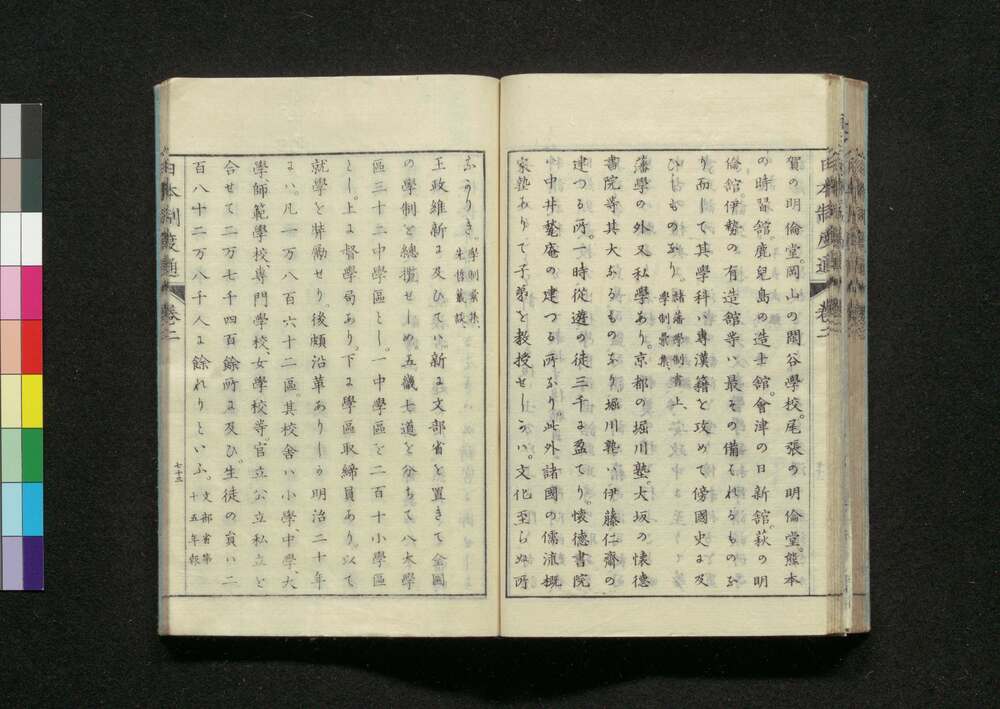 賀の明倫堂。岡山の閑谷學校。尾張の明倫堂。熊本
の時習館。鹿兒島の造士館。會津の日新館。萩の明
倫館伊勢の有造館等ハ最その備はれるものな
り而して其學科ハ專漢籍を攻めて傍國史に及
びしものなり 諸藩學制書上、學制彙集、
藩學の外又私學あり。京都の堀川塾。大坂の懷德
書院等其大なるものなり堀川塾ハ伊藤仁齋の
建つる所。一時從遊の徒三千に盈てり。懷德書院
ハ中井甃庵の建つる所なり。此外諸國の儒流概
家塾ありて子弟を敎授せしかバ。文化至らぬ所
なかりき。學制彙集、先哲叢談、
王政維新に及びてハ新に文部省を置きて全國
の學制を總攬せしめ五畿七道を分ちて八大學
區三十二中學區とし。一中學區を二百十小學區
とし。上に督學局あり。下に學區取締員あり。以て
就學を奬勵せり。後頗沿革ありしが明治二十年
にハ。凡一万八百六十二區。其校舍ハ小學、中學、大
學師範學校、專門學校、女學校等。官立公立私立を
合せて二万七千四百餘所に及び。生徒の員ハ二
百八十二万八千人に餘れりといふ。文部省第十五年報
日本制度通 卷二
七十三
日本制度通 卷二